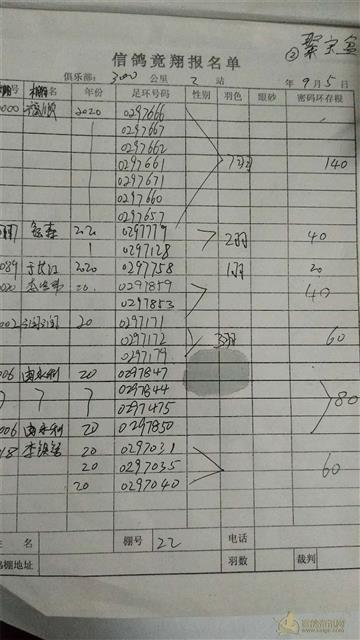 ②聚宝盆
信鸽竞翔报名单
俱乐部: 300 公里 2 站 年 9 月 5 日
棚号 棚名 年份 足环号码 性别 羽色 眼砂 密码环存根
0000 2020 0297666
0297667
0297662
0297661 7羽 140
0297671
0297660
0297657
2020 0297779 2羽 40
0297128
0089 于长江 2020 0297758 1羽 20
20 0297859 40
0297853
002 润润 20 0297171
0297172 3羽 60
0297179
006 20 0297847
0297844
0297475 80
006 20 0297850
20 0297031
20 0297035 60
20 0297040
姓名 棚号 22 电话
鸽棚地址 羽数 裁判